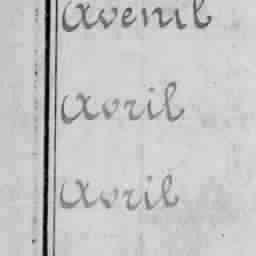 Avenil
Avril
Avril